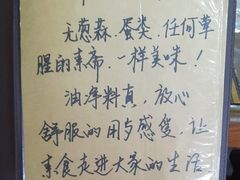 无葱蒜、蛋类、任何荤
腥的素斋、一样美味！
油净料真，放心
舒服的用与感觉，让
素食走进大家的生活